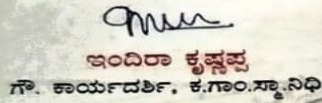 ಇಂದಿರಾ ಕೃಷ್ಣಪ್ಪ
ಗೌ. ಕಾರ್ಯದರ್ಶಿ, ಕ.ಗಾಂ.ಸ್ಮಾ.ನಿಧಿ